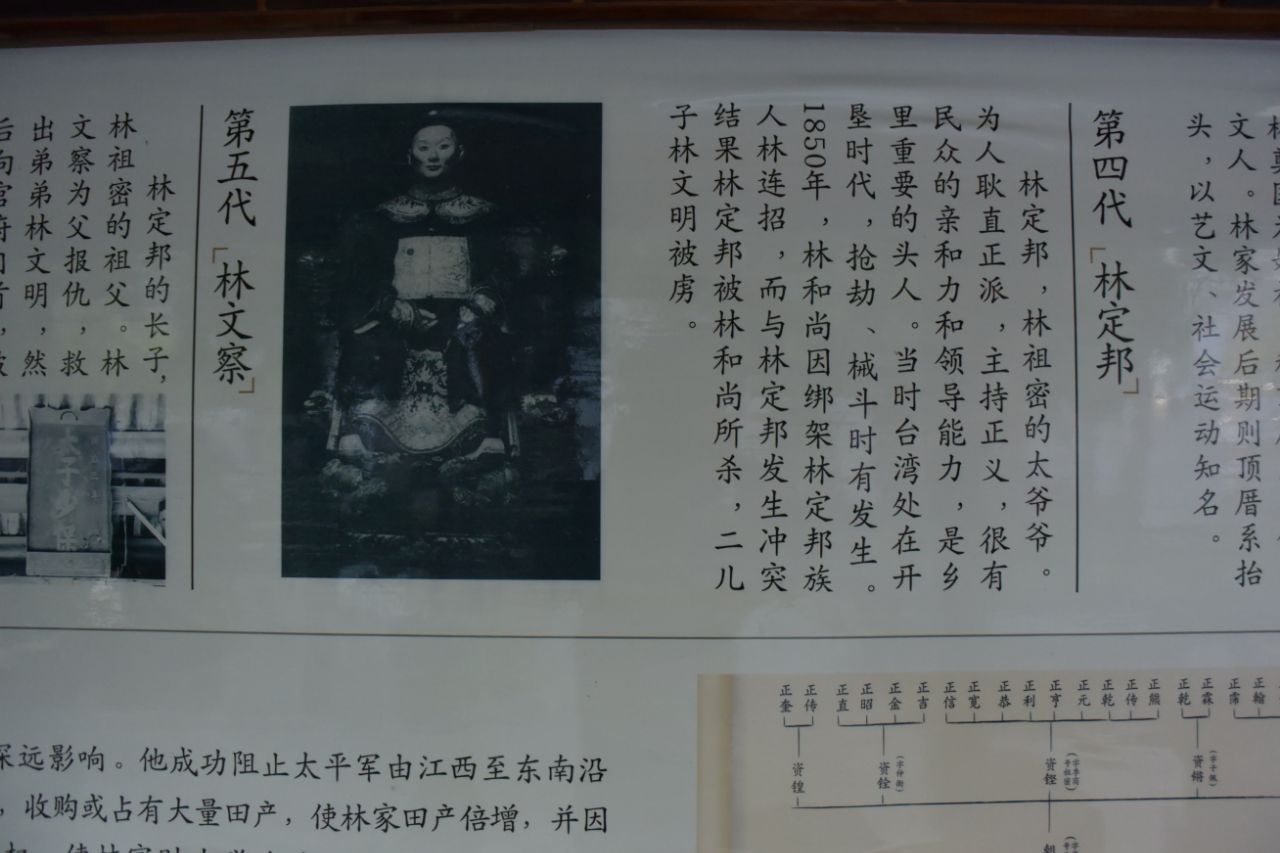 文人。林家发展后期则顶厝系抬
头，以艺文、社会运动知名。
第四代「林定邦」
林定邦，林祖密的太爷爷。
为人耿直正派，主持正义，很有
民众的亲和力和领导能力，是乡
里重要的头人。当时台湾处在开
垦时代，抢劫、械斗时有发生。
1850年，林和尚因绑架林定邦族
人林连招，而与林定邦发生冲突
结果林定邦被林和尚所杀，二儿
子林文明被虏。
第五代「林文察」
林定邦的长子，
林祖密的祖父。林
文察为父报仇，救
出弟弟林文明，然
太子少保
深远影响。他成功阻止太平军由江西至东南沿
，收购或占有大量田产，使林家田产倍增，并因
正奎 正传 正直 正昭 正金 正吉 正信 正宽 正恭 正利 正亨 正元 正乾 正传 正熊 正乾 正霖 正霈 正翰
资锽 资铨 资铿 资锵